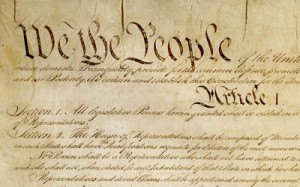 We the People of the United
insure domestic Tranquility, provide for the common defence, promote
and our Posterity, do ordain and establish this Constitution for the
Article I.
Section 1. All legislative Powers herein granted shall be vested in a
of Representatives.
Section 2. The House of Representatives shall be composed of Members
in each State shall have Qualifications requisite for Electors of the most numerous
No Person shall be a Representative who shall not have attained to
and who shall not, when elected, be an Inhabitant of that State in which he shall
Representatives and direct Taxes shall be apportioned among the several